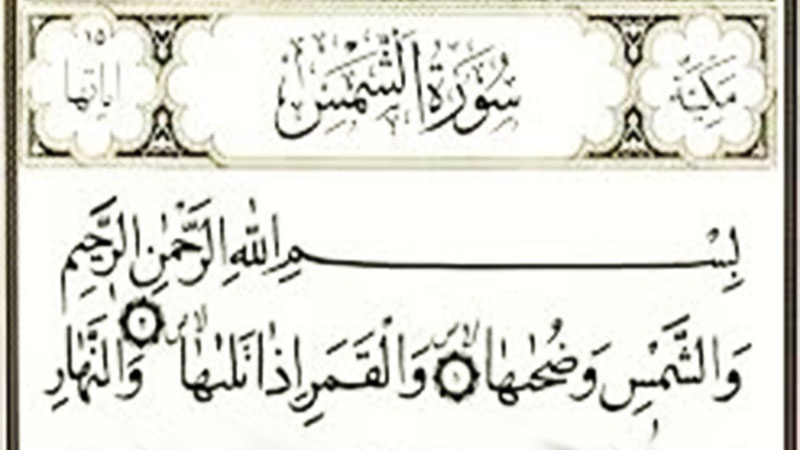 مَكِيَّة سُورَةُ الشَّمْسِ ١٥ اياتها
بِسْمِ اللهِ الرَّحْمٰنِ الرَّحِيمِ
وَالشَّمْسِ وَضُحٰىهَا ۙ ١ وَالْقَمَرِ اِذَا تَلٰىهَا ۙ ٢ وَالنَّهَارِ